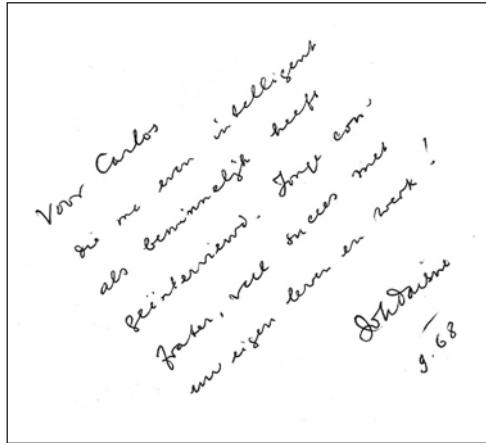 Voor Carlos
die me even intelligent
als beminnelijk heeft
geïnterviewd. Jonge con-
frater, veel succes met
uw eigen leven en werk!
Joh Daisne
9.68